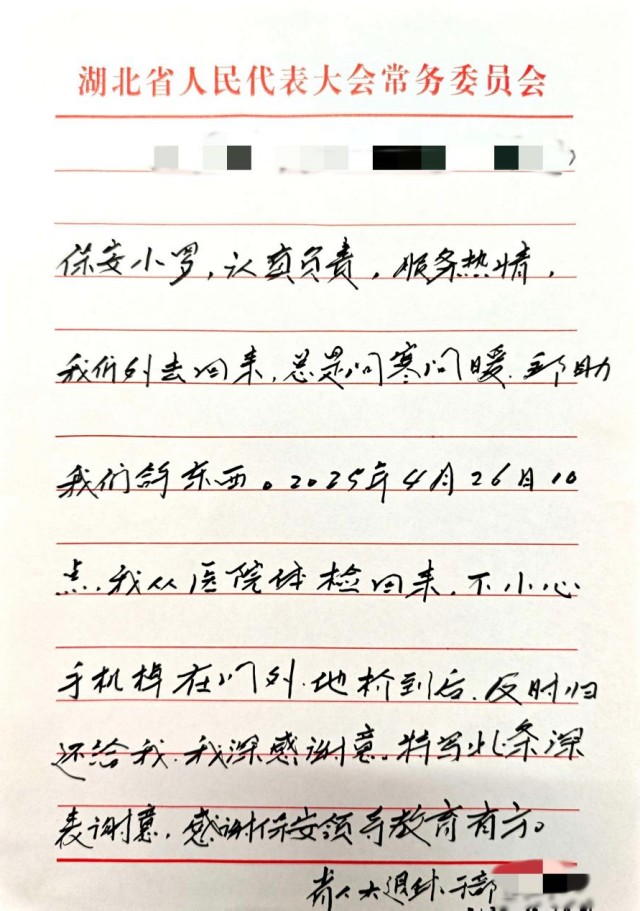 湖北省人民代表大会常务委员会
保安小罗，认真负责，服务热情，
我们外去回来，总是问寒问暖.帮助
我们拿东西。2025年4月26日10
点，我从医院体检回来，不小心
手机掉在门外.地检到后.反时归
还给我.我深感谢意。特写此条深
表谢意，感谢保安领导教育有方。
省人大退休干部